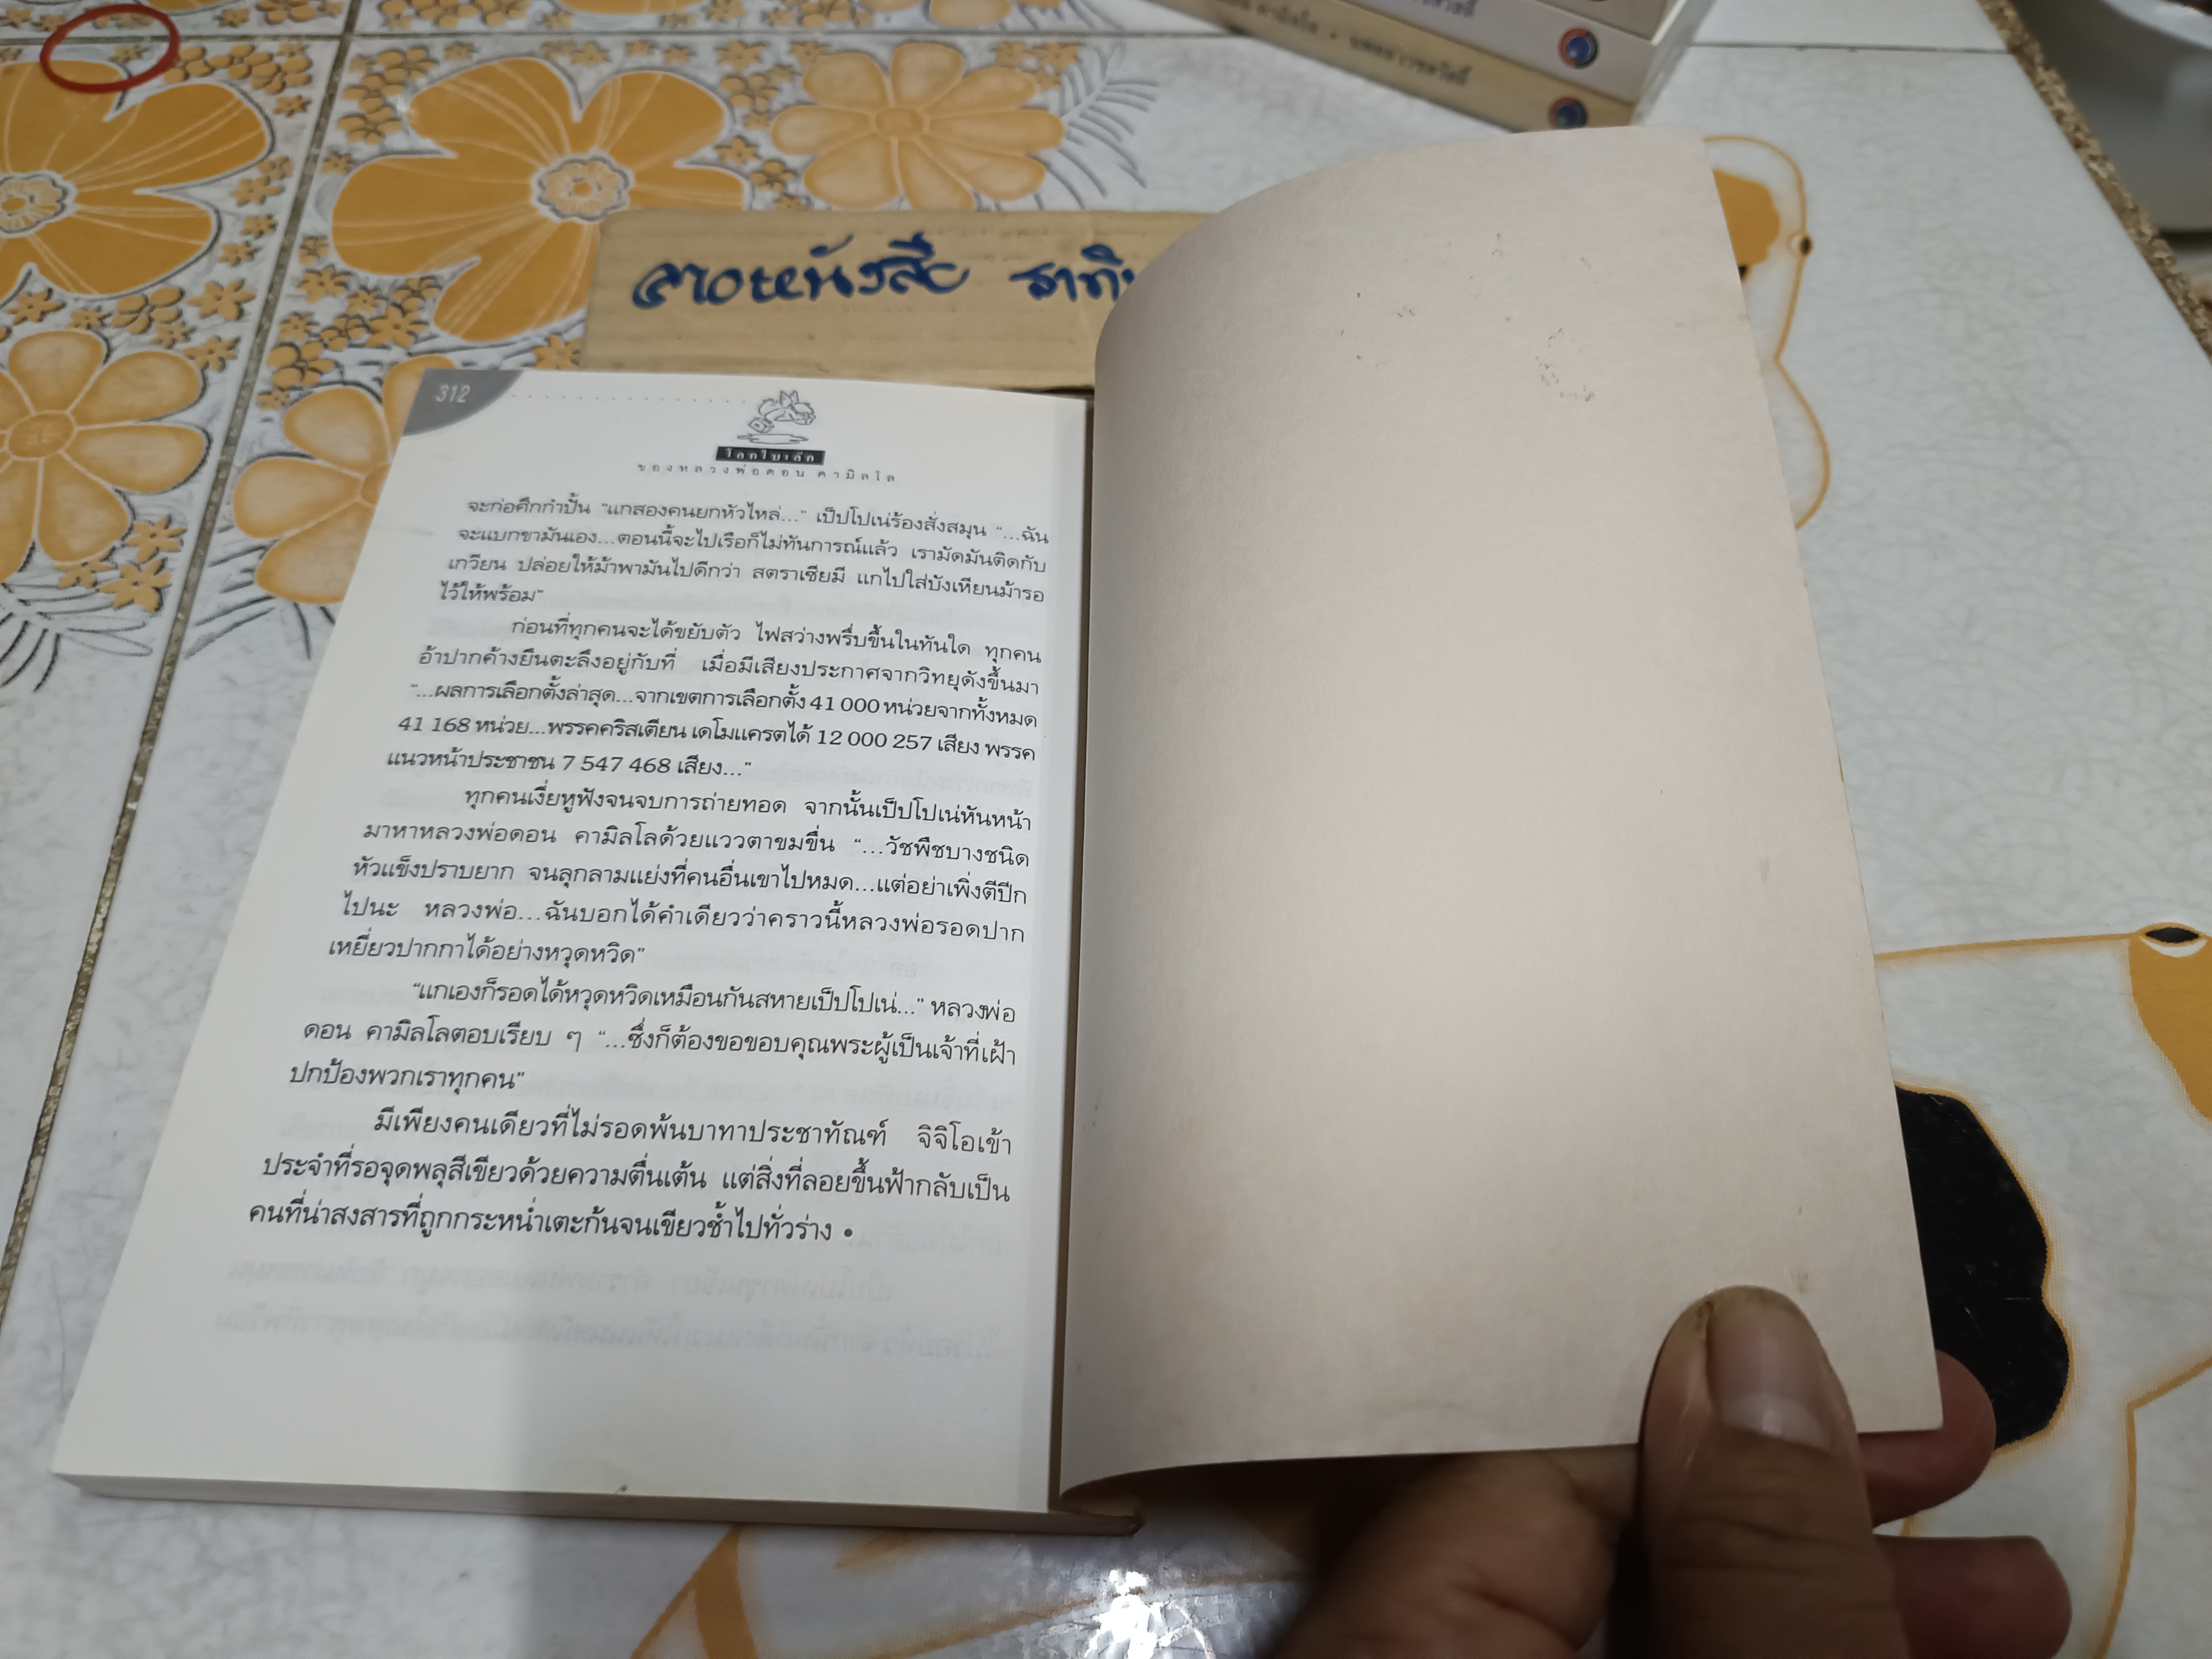 ลายหนังสือ
312
โลกใบเล็ก
ของหลวงพ่อดอน คามิลโล
จะก่อศึกกำปั้น “แกสองคนยกหัวไหล่...” เป็ปโปเน่ร้องสั่งสมุน “...ฉัน
จะแบกขามันเอง...ตอนนี้จะไปเรือก็ไม่ทันการณ์แล้ว เรามัดมันติดกับ
เกวียน ปล่อยให้ม้าพามันไปดีกว่า สตราเซียมี แกไปใส่บังเหียนม้ารอ
ไว้ให้พร้อม”
ก่อนที่ทุกคนจะได้ขยับตัว ไฟสว่างพรึ่บขึ้นในทันใด ทุกคน
อ้าปากค้างยืนตะลึงอยู่กับที่ เมื่อมีเสียงประกาศจากวิทยุดังขึ้นมา
“...ผลการเลือกตั้งล่าสุด...จากเขตการเลือกตั้ง 41 000 หน่วยจากทั้งหมด
41 168 หน่วย...พรรคคริสเตียน เดโมแครตได้ 12 000 257 เสียง พรรค
แนวหน้าประชาชน 7 547 468 เสียง...”
ทุกคนเงี่ยหูฟังจนจบการถ่ายทอด จากนั้นเป็ปโปเน่หันหน้า
มาหาหลวงพ่อดอน คามิลโลด้วยแววตาขมขื่น “...วัชพืชบางชนิด
หัวแข็งปราบยาก จนลุกลามแย่งที่คนอื่นเขาไปหมด...แต่อย่าเพิ่งตีปีก
ไปนะ หลวงพ่อ...ฉันบอกได้คำเดียวว่าคราวนี้หลวงพ่อรอดปาก
เหยี่ยวปากกาได้อย่างหวุดหวิด”
“แกเองก็รอดได้หวุดหวิดเหมือนกันสหายเป็ปโปเน่...” หลวงพ่อ
ดอน คามิลโลตอบเรียบ ๆ “...ซึ่งก็ต้องขอขอบคุณพระผู้เป็นเจ้าที่เฝ้า
ปกป้องพวกเราทุกคน”
มีเพียงคนเดียวที่ไม่รอดพ้นบาทาประชาทัณฑ์ จิจิโอเข้า
ประจำที่รอจุดพลุสีเขียวด้วยความตื่นเต้น แต่สิ่งที่ลอยขึ้นฟ้ากลับเป็น
คนที่น่าสงสารที่ถูกกระหน่ำเตะก้นจนเขียวช้ำไปทั่วร่าง •